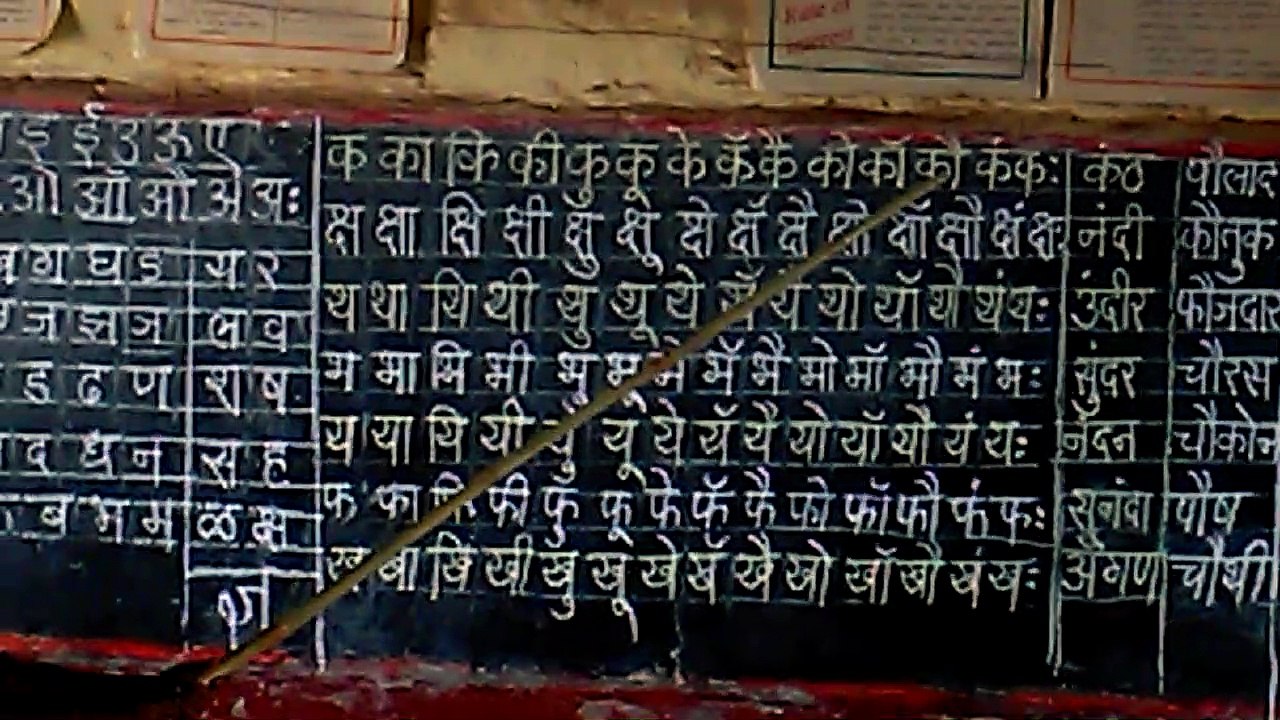 इ ई उ ऊ ए
ओ ऑ औ अं अः
ग घ ङ य र
ज झ ञ ल व
ड ढ ण श ष
द ध न स ह
ब भ म ळ क्ष
ज्ञ
क का कि की कु कू के कॅ कै को कॉ कौ कं कः कंठ पौलाद
क्ष क्षा क्षि क्षी क्षु क्षू क्षे क्षॅ क्षै क्षो क्षॉ क्षौ क्षं क्षः नंदी कौतुक
थ था थि थी थु थू थे थॅ थै थो थॉ थौ थं थः उंदीर फौजदार
भ भा भि भी भु भू भे भॅ भै भो भॉ भौ भं भः सुंदर चौरस
य या यि यी यु यू ये यॅ यै यो यॉ यौ यं यः नंदन चौकोन
फ फा फि फी फु फू फे फॅ फै फो फॉ फौ फं फः सुनंदा पौष
ख खा खि खी खु खू खे खॅ खै खो खॉ खौ खं खः अंगण चौथी